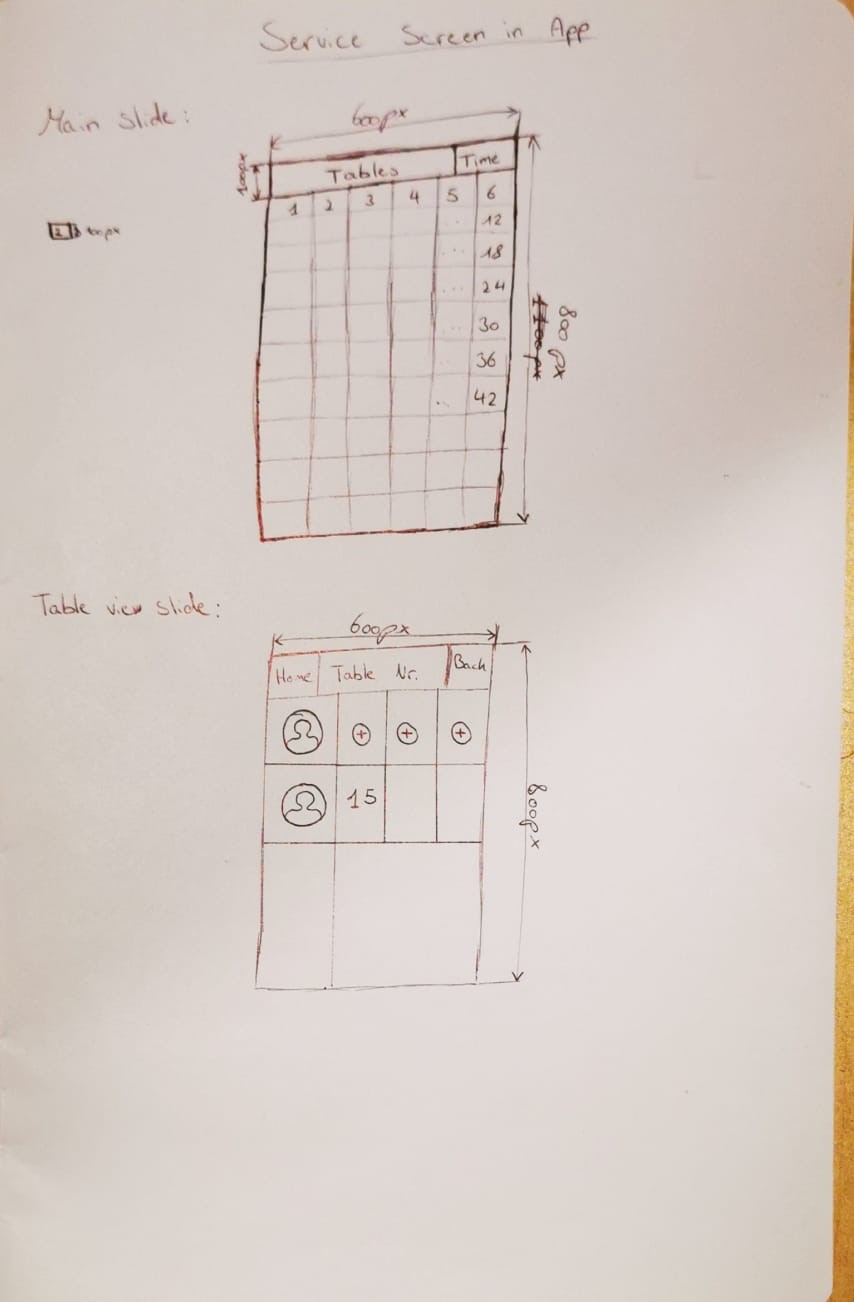 Service Screen in App
Main slide:
600px
100px
Tables
Time
1 2 3 4 5 6
.. 12
... 18
... 24
.. 30
36
.. 42
800 px
Table view slide:
600px
Home
Table Nr.
Back
+ + +
15
800px